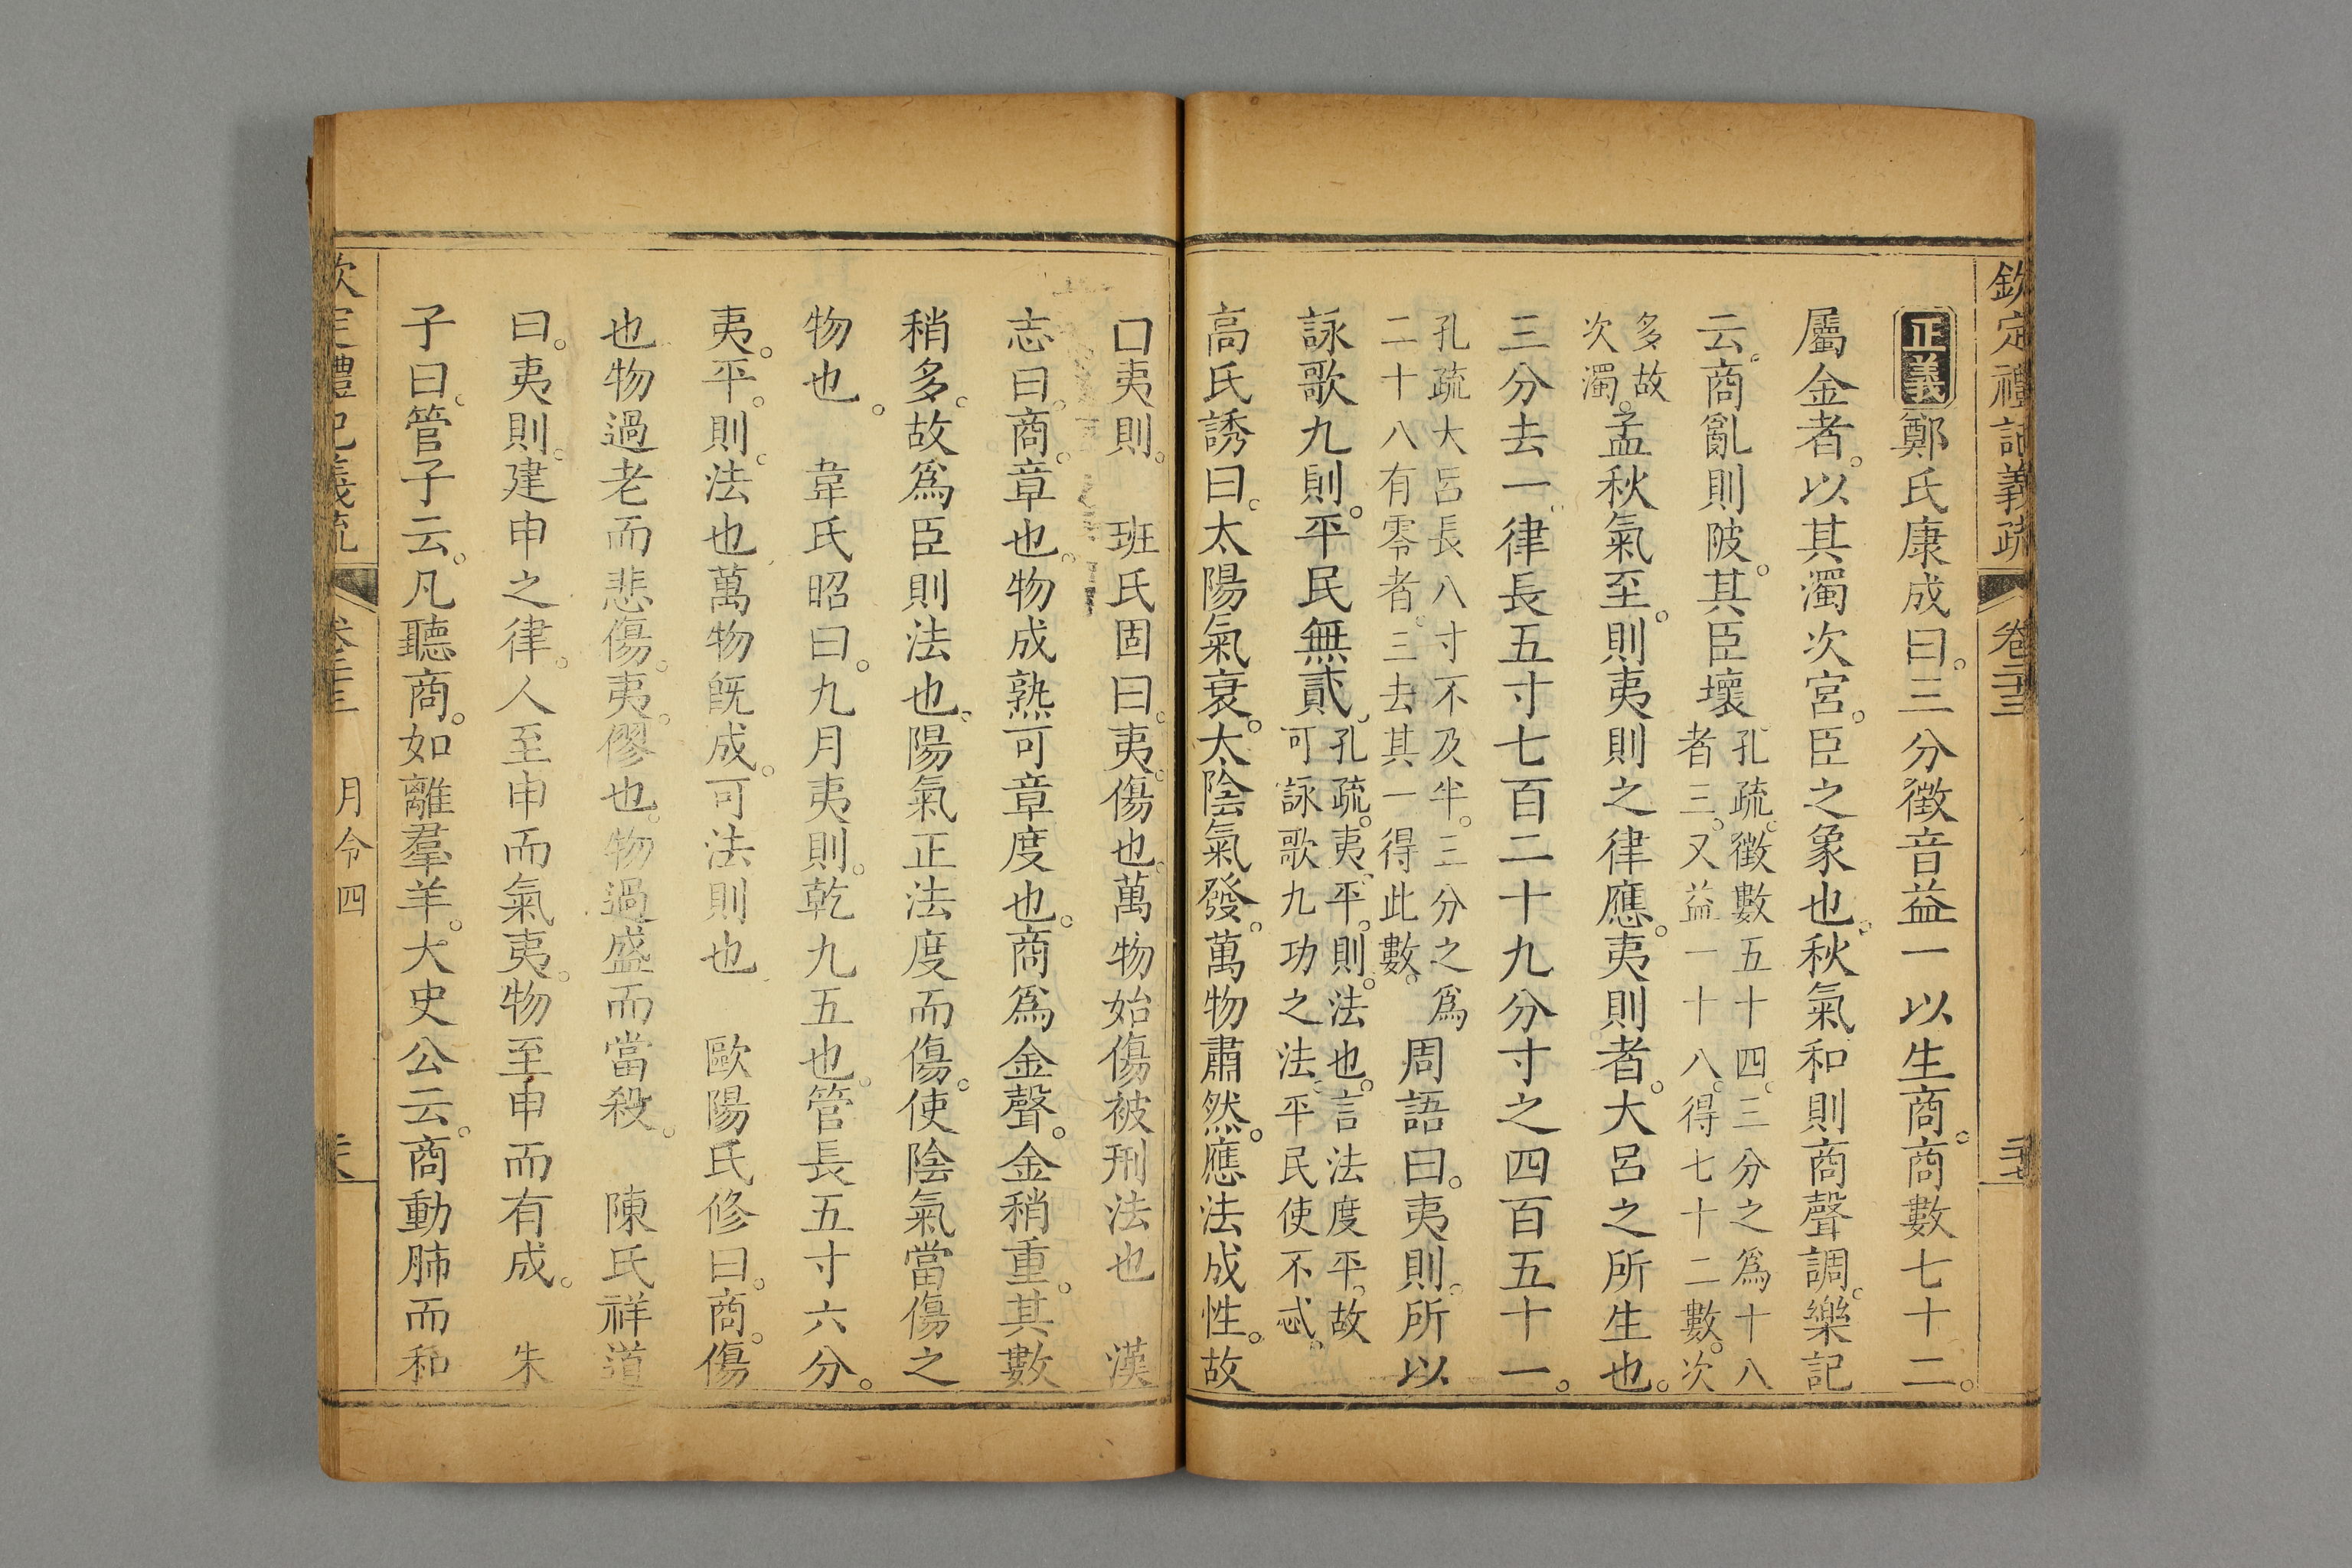 欽定禮記義疏 卷二十三 二十七
正義鄭氏康成曰。三分徵音益一以生商。商數七十二。
屬金者。以其濁次宮。臣之象也。秋氣和則商聲調。樂記
云。商亂則陂。其臣壞孔疏。徵數五十四。三分之爲十八者三。又益一十八。得七十二數。次
多故次濁。孟秋氣至。則夷則之律應。夷則者。大呂之所生也。
三分去一。律長五寸七百二十九分寸之四百五十一。
孔疏大呂長八寸不及半。三分之爲二十八有零者。三去其一得此數。周語曰。夷則。所以
詠歌九則。平民無貳。孔疏。夷。平。則。法也。言法度平。故可詠歌九功之法。平民使不忒。
高氏誘曰。太陽氣衰。太陰氣發。萬物肅然。應法成性。故
口夷則。 班氏固曰。夷。傷也。萬物始傷被刑法也 漢
志曰。商。章也。物成熟可章度也。商爲金聲。金稍重。其數
稍多。故爲臣則法也。陽氣正法度而傷。使陰氣當傷之
物也。 韋氏昭曰。九月夷則。乾九五也。管長五寸六分。
夷。平。則。法也。萬物旣成。可法則也 歐陽氏修曰。商。傷
也物過老而悲傷。夷。僇也。物過盛而當殺。 陳氏祥道
曰。夷則。建申之律。人至申而氣夷。物至申而有成。 朱
子曰。管子云。凡聽商。如離羣羊。大史公云。商動肺而和
欽定禮記義疏 卷二十三 月令四 二十八